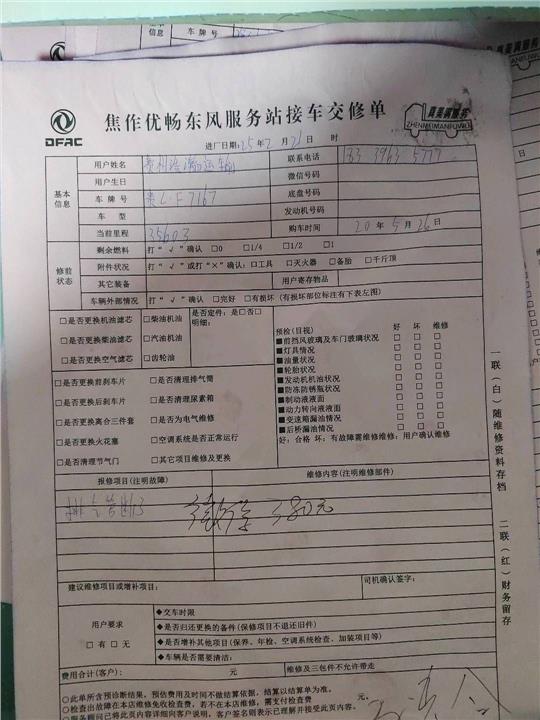 基本
信息
车 牌 号
DFAC
焦作优畅东风服务站接车交修单
真美满服务
ZHENMEIMANFUWU
进厂日期:25年2月21日 时
用户姓名 联系电话 183 3963 5777
用户生日 微信号码
基本信息 车 牌 号 贵L·F7167 底盘号码
车 型 发动机号码
当前里程 35603 购车时间 20年5月26日
修前状态 剩余燃料 打“√”确认 □0 □1/4 □1/2 □1
附件状况 打“√”或打“×”确认:□工具 □灭火器 □备胎 □千斤顶
其它装备 用户寄存物品
车辆外部情况 打“√”确认 □完好 □有损坏 (有损坏部位标注有下表左图)
□是否更换机油滤芯 □柴油机油 是否定件:是□否□
明细:
□是否更换柴油滤芯 □汽油机油
□是否更换空气滤芯 □齿轮油
预检(目视) 好 坏 维修
■前挡风玻璃及车门玻璃状况 □ □ □
■灯具情况 □ □ □
■油量状况 □ □ □
■轮胎状况 □ □ □
■发动机机油状况 □ □ □
■防冻防锈瓶状况 □ □ □
■制动液液面 □ □ □
■动力转向液液面 □ □ □
■变速箱漏油情况 □ □ □
■后桥漏油情况 □ □ □
好:合格 坏:有故障需维修维修:用户确认维修
□是否更换前刹车片 □是否清理排气筒
□是否更换后刹车片 □是否清理尿素箱
□是否更换离合三件套 □是否为电气维修
□是否更换火花塞 □空调系统是否正常运行
□是否清理节气门 □其它项目维修及更换
报修项目(注明故障) 维修内容(注明维修部件)
排气管断 380元
建议维修项目或增补项目: 司机确认签字:
用户要求
□有 □无
◆交车时限
◆是否归还更换的备件(保修项目不退还旧件)
◆是否增补其他项目(保养、年检、空调系统检查、加装项目等)
◆车辆是否需要清洁:
费用合计(客户): 元 维修及三包件不允许带走
○此单所含预诊断结果,预估费用及时间不做结算依据,结算以结算单为准。
○检查出故障在本店维修免收检查费,若不在本店维修,需支付检查费 元。
○服务顾问已将此页内容详细向客户说明,客户签名则表示已理解并接受此页内容。
一联(白)随维修资料存档 二联(红)财务留存